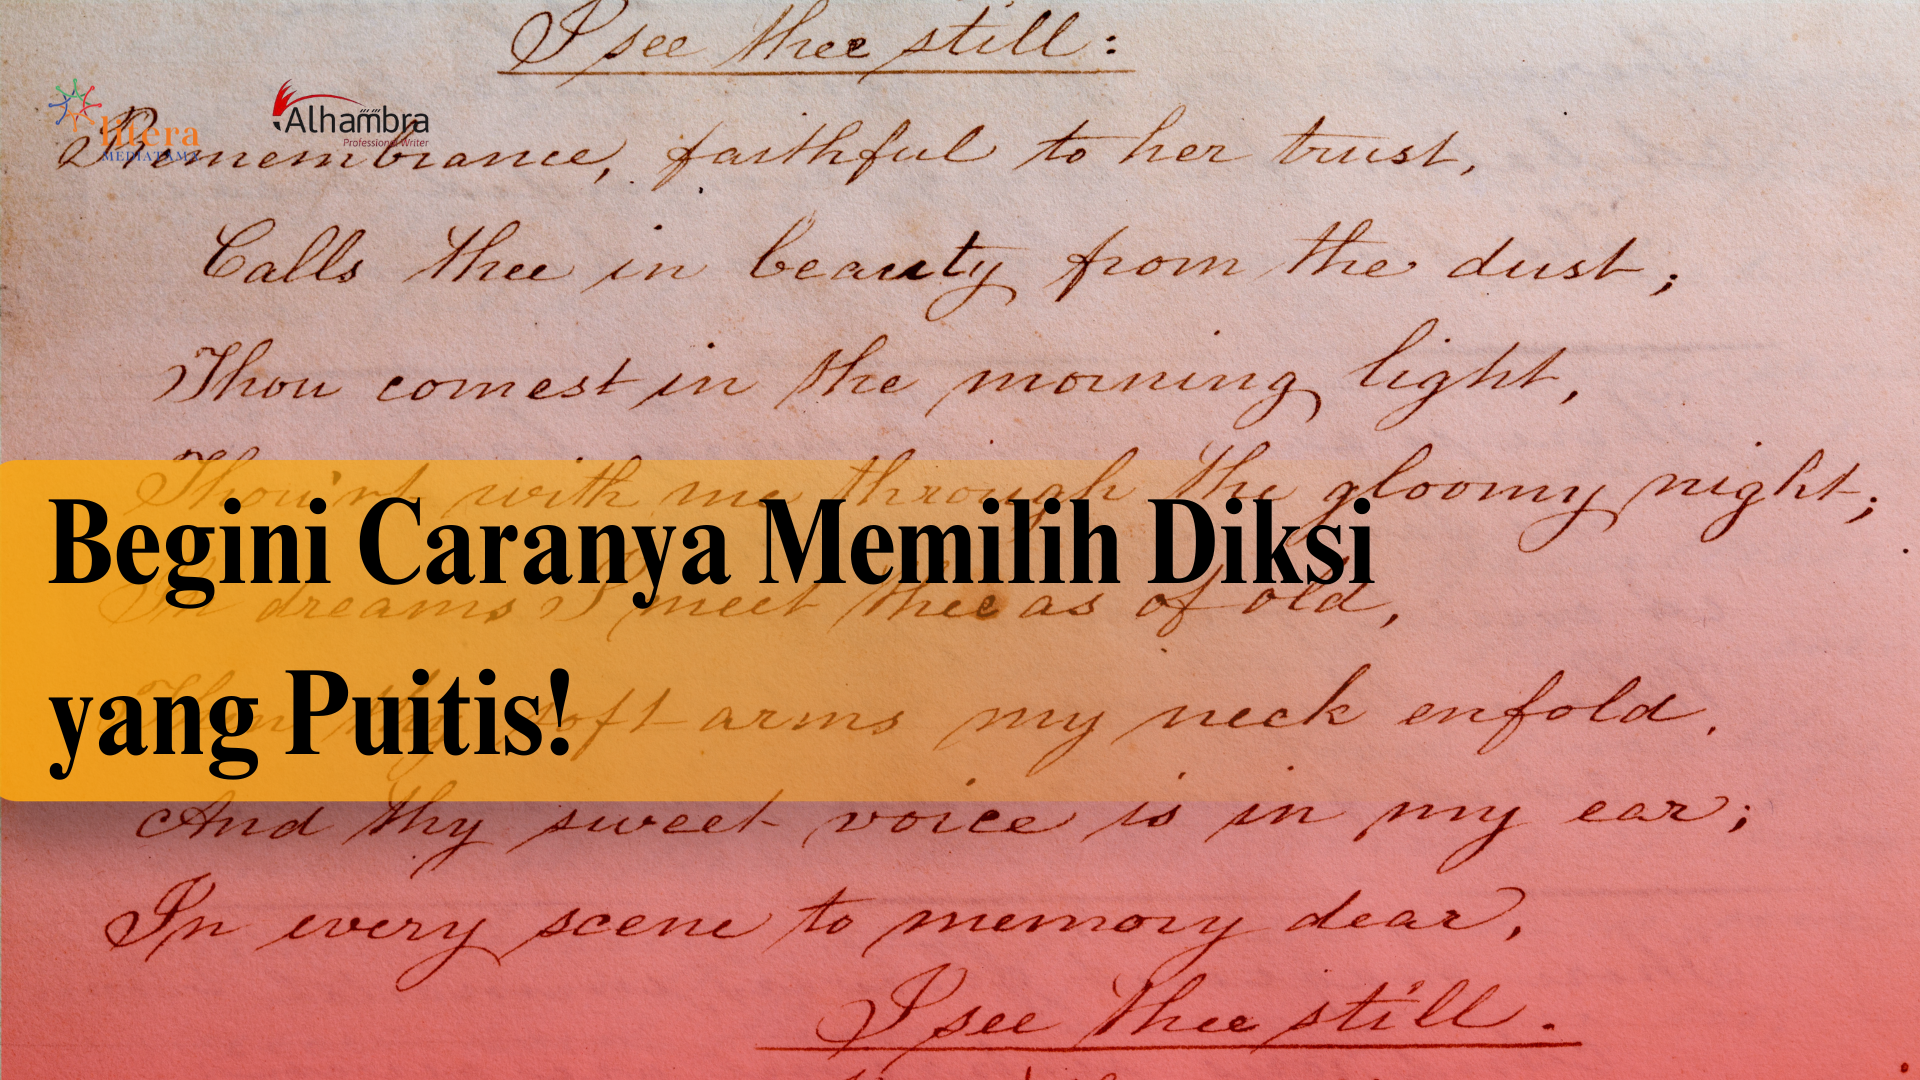 I see thee still:
litera
MEDIATAMA
Alhambra
Professional Writer
Remembrance, faithful to her trust,
Calls thee in beauty from the dust;
Thou comest in the morning light,
Thou'rt with me through the gloomy night;
Begini Caranya Memilih Diksi
In dreams I meet thee as of old,
yang Puitis!
Then thy soft arms my neck enfold.
And thy sweet voice is in my ear;
In every scene to memory dear,
I see thee still.